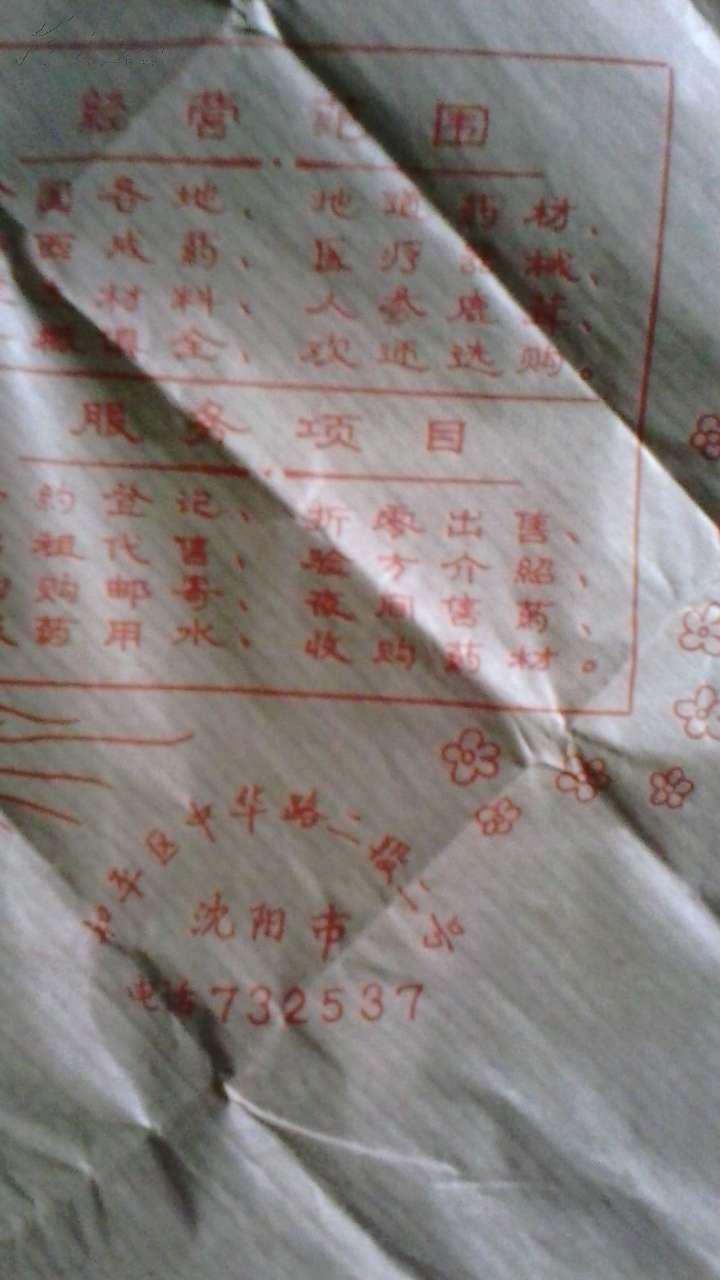 经营范围
国各地、地道药材、
西成药、医疗器械、
材料、人参鹿茸、
全、欢迎选购。
服务项目
约登记、拆零出售、
租代售、验方介绍、
购邮寄、夜间售药、
药用水、收购药材。
和平区中华路二段一号
沈阳市
电话732537